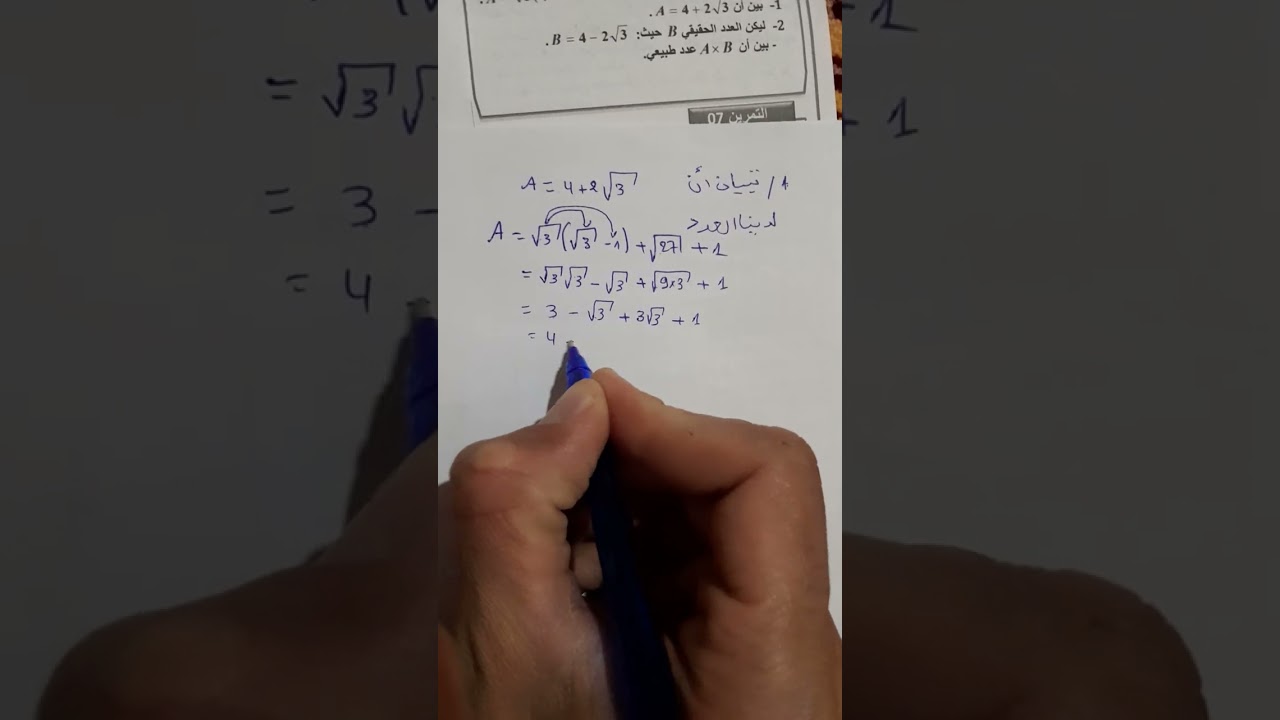 1- بين أن A = 4 + 2√3 .
2- ليكن العدد الحقيقي B حيث: B = 4 − 2√3 .
- بين أن A × B عدد طبيعي.
التمرين 07
1/ تبيان أن A = 4 + 2√3
لدينا العدد
A = √3(√3 − 1) + √27 + 1
= √3√3 − √3 + √9×3 + 1
= 3 − √3 + 3√3 + 1
= 4